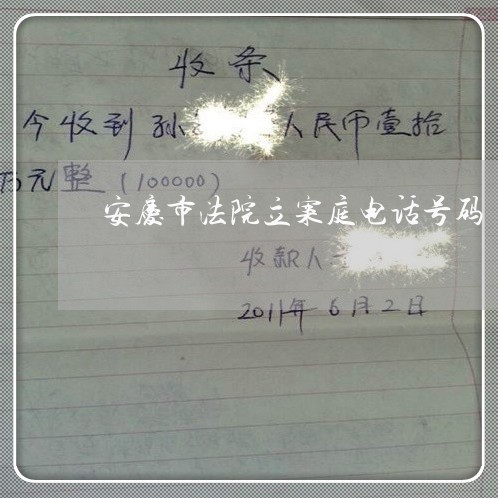 收条
今收到孙 人民币壹拾
万元整(100000)
安庆市法院立案庭电话号码
收款人
2011年6月2日